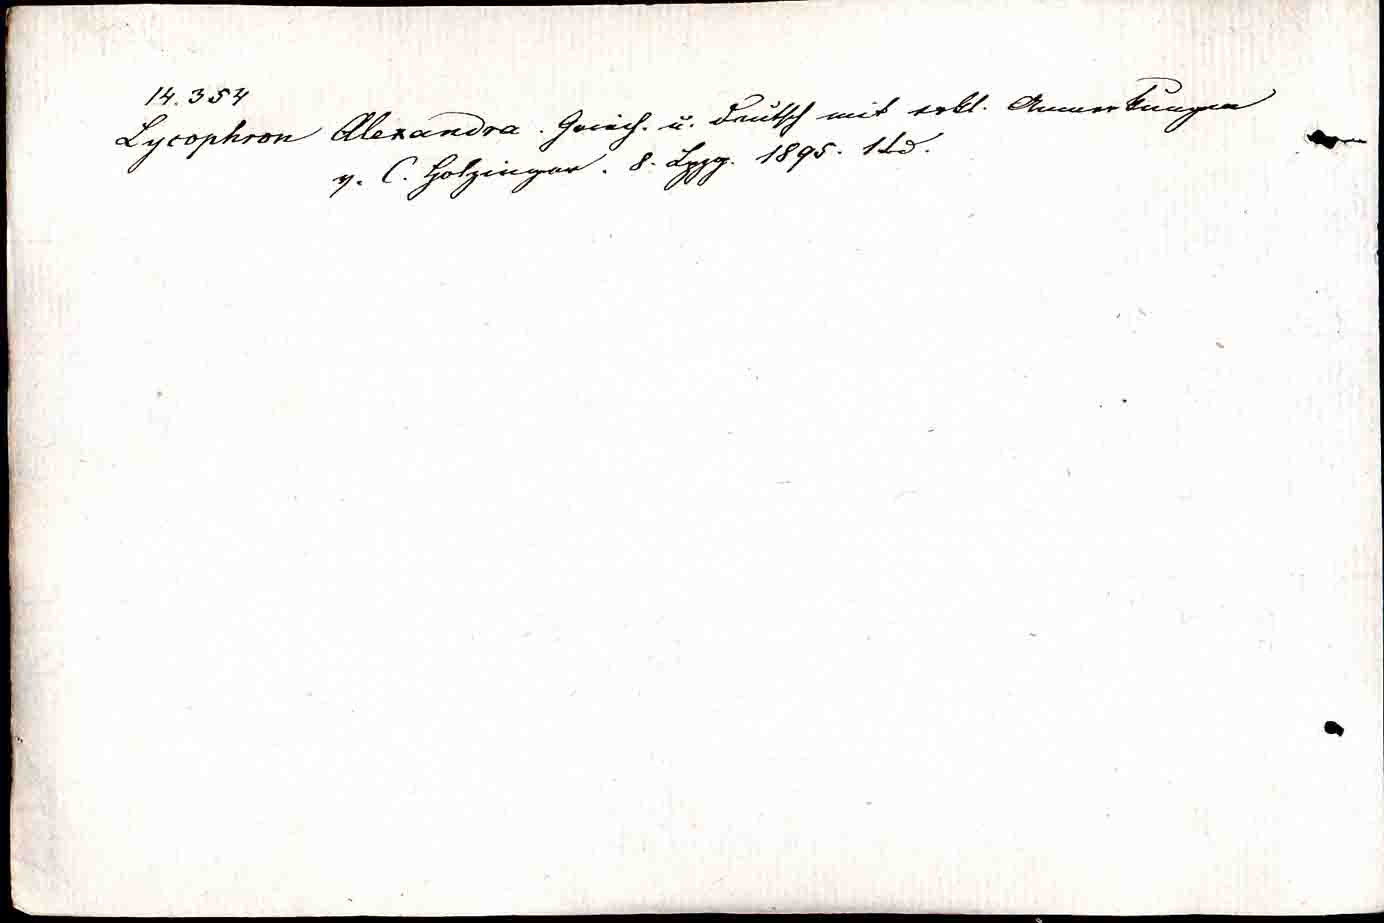 14.354
Lycophron Alexandra. Griech. u. Deutsch mit erkl. Anmerkungen
v. C. Holzinger. 8. Lpzg. 1895. 1 Bd.